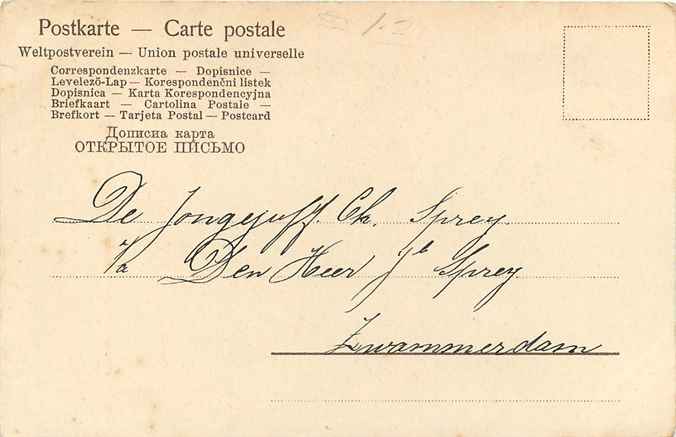 Postkarte — Carte postale
Weltpostverein — Union postale universelle
Correspondenzkarte — Dopisnice —
Levelező-Lap — Korespondenčni listek
Dopisnica — Karta Korespondencyjna
Briefkaart — Cartolina Postale —
Brefkort — Tarjeta Postal — Postcard
Дописна карта
ОТКРЫТОЕ ПИСЬМО
De Jongejuff. Ch. Sprey.
p/a Den Heer Jb Sprey
Zwammerdam